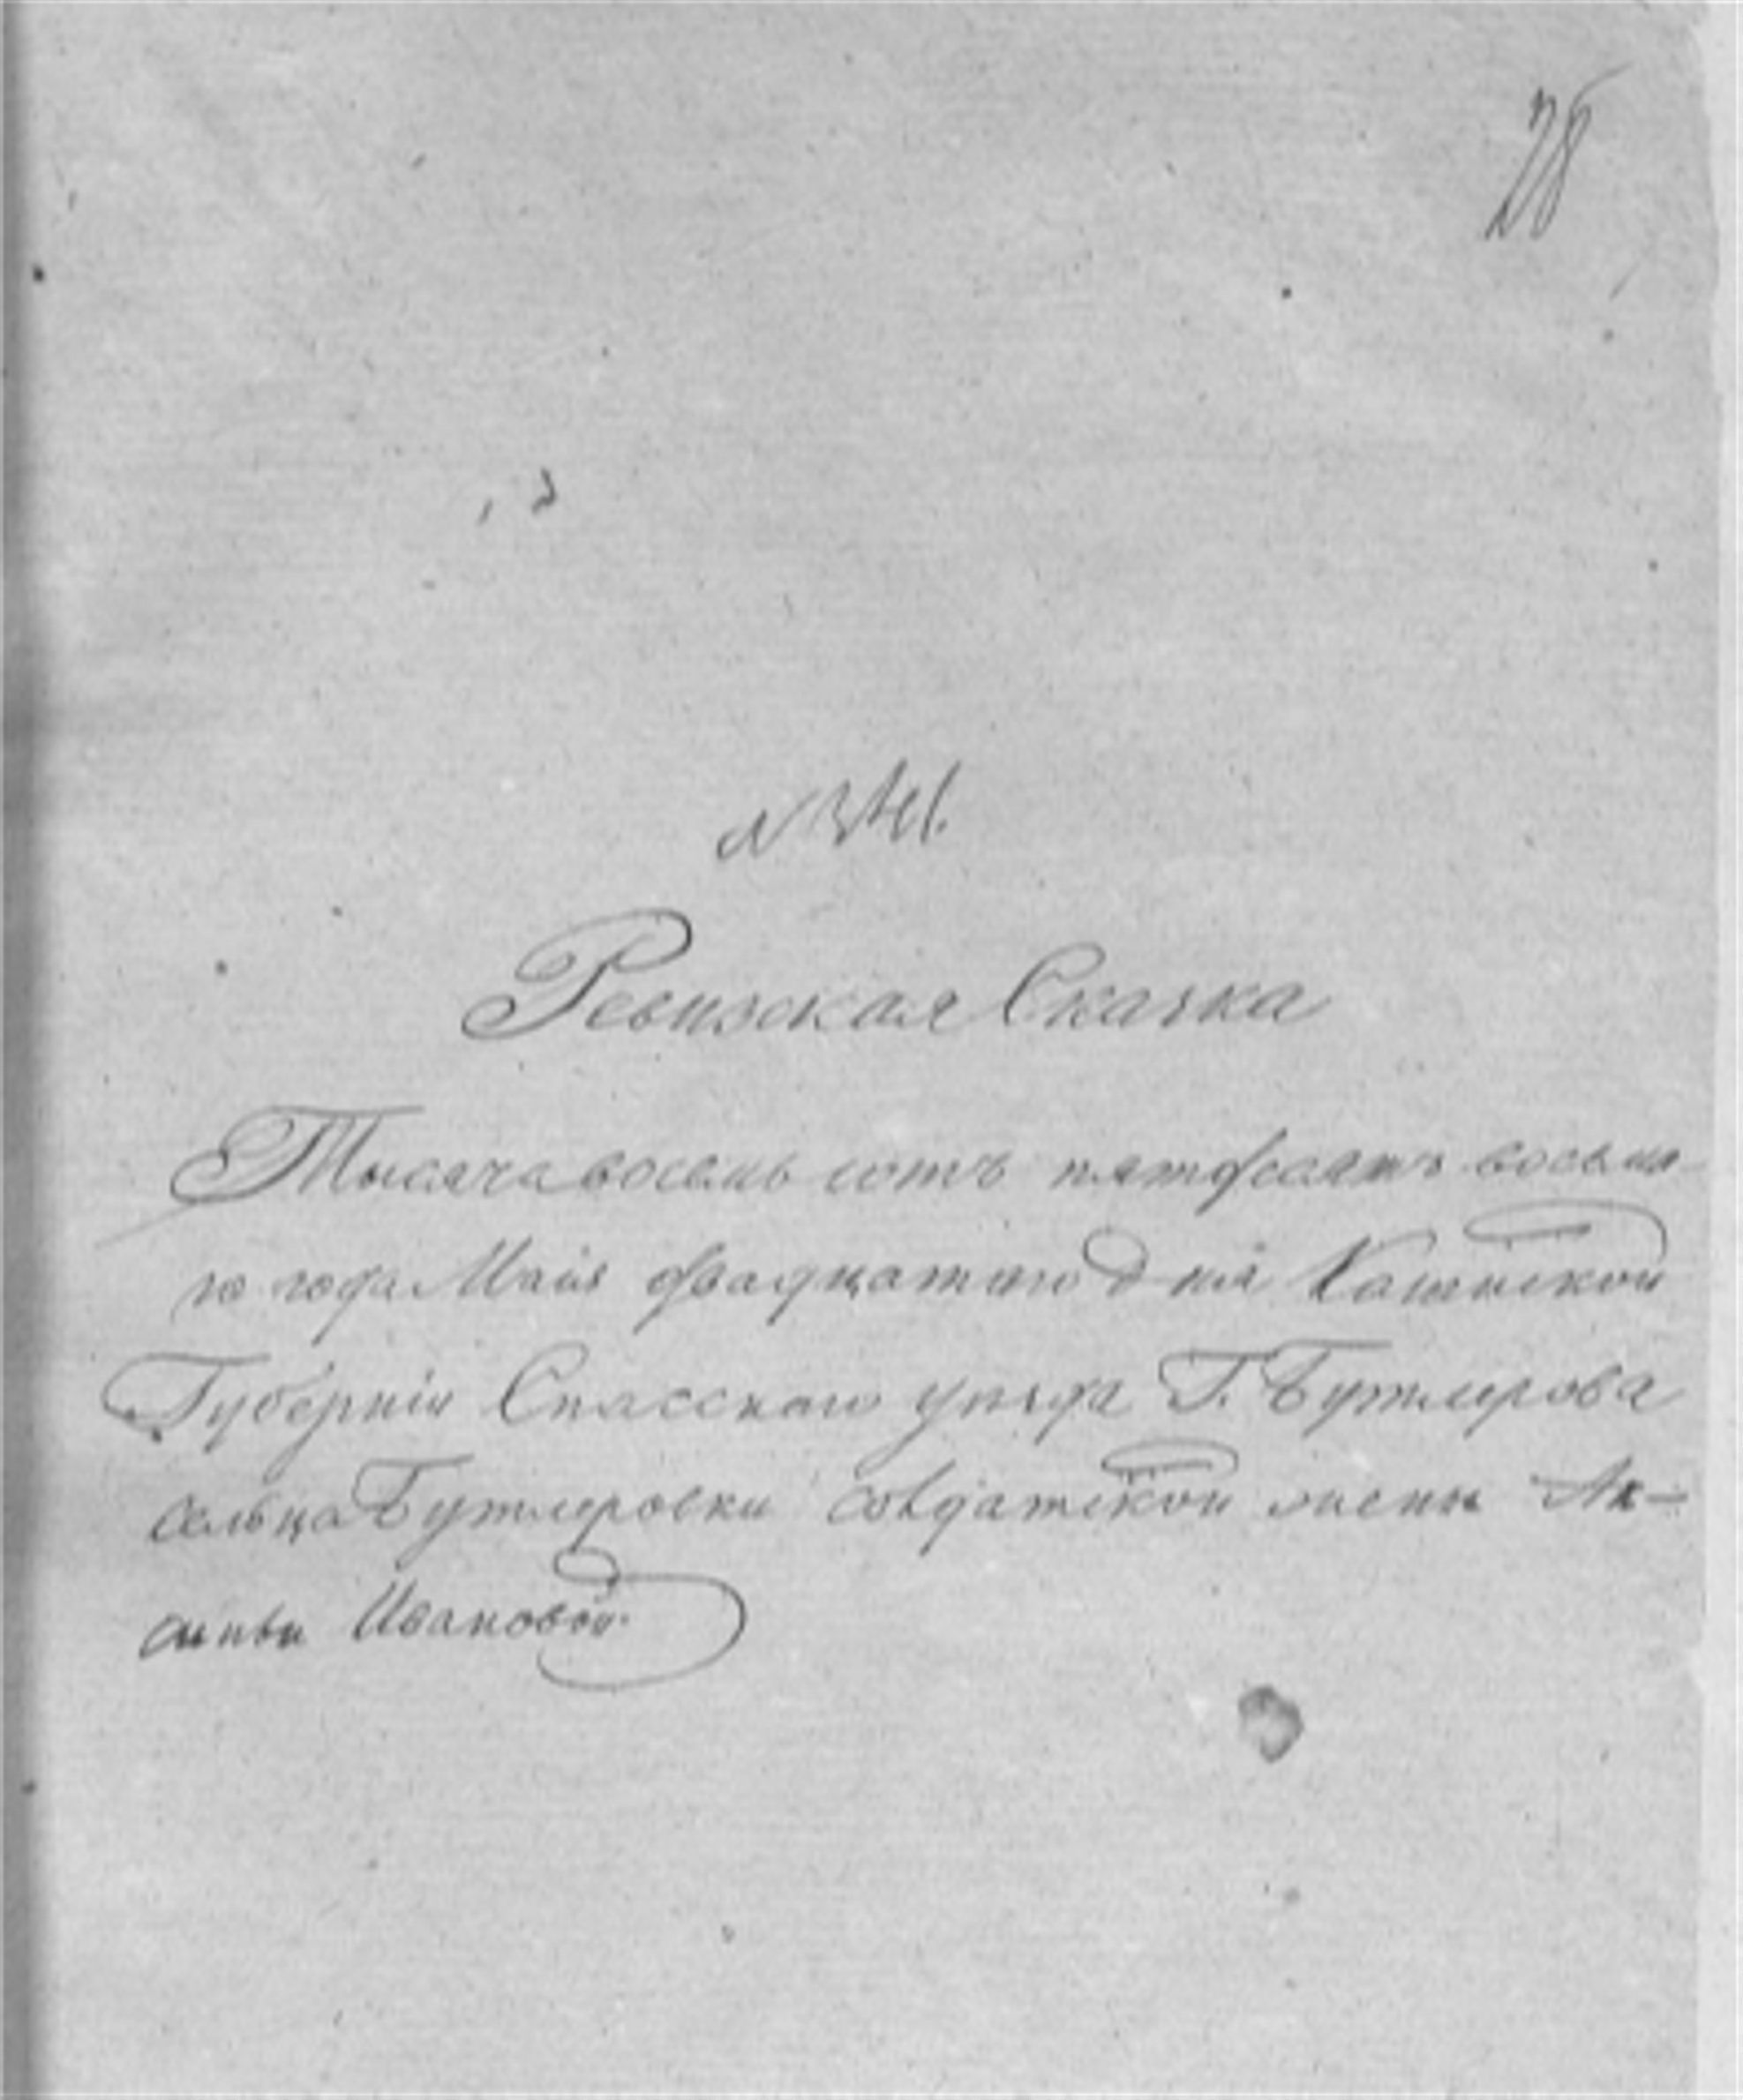 28
Ревизская Сказка
Тысяча восемь сотъ пятдесятъ восьма-
го года Маія двадцатаго дня Казанской
Губерніи Спасскаго уѣзда Г. Бутлерова
сельца Бутлеровки солдатской жены Ак-
синьи Ивановой.